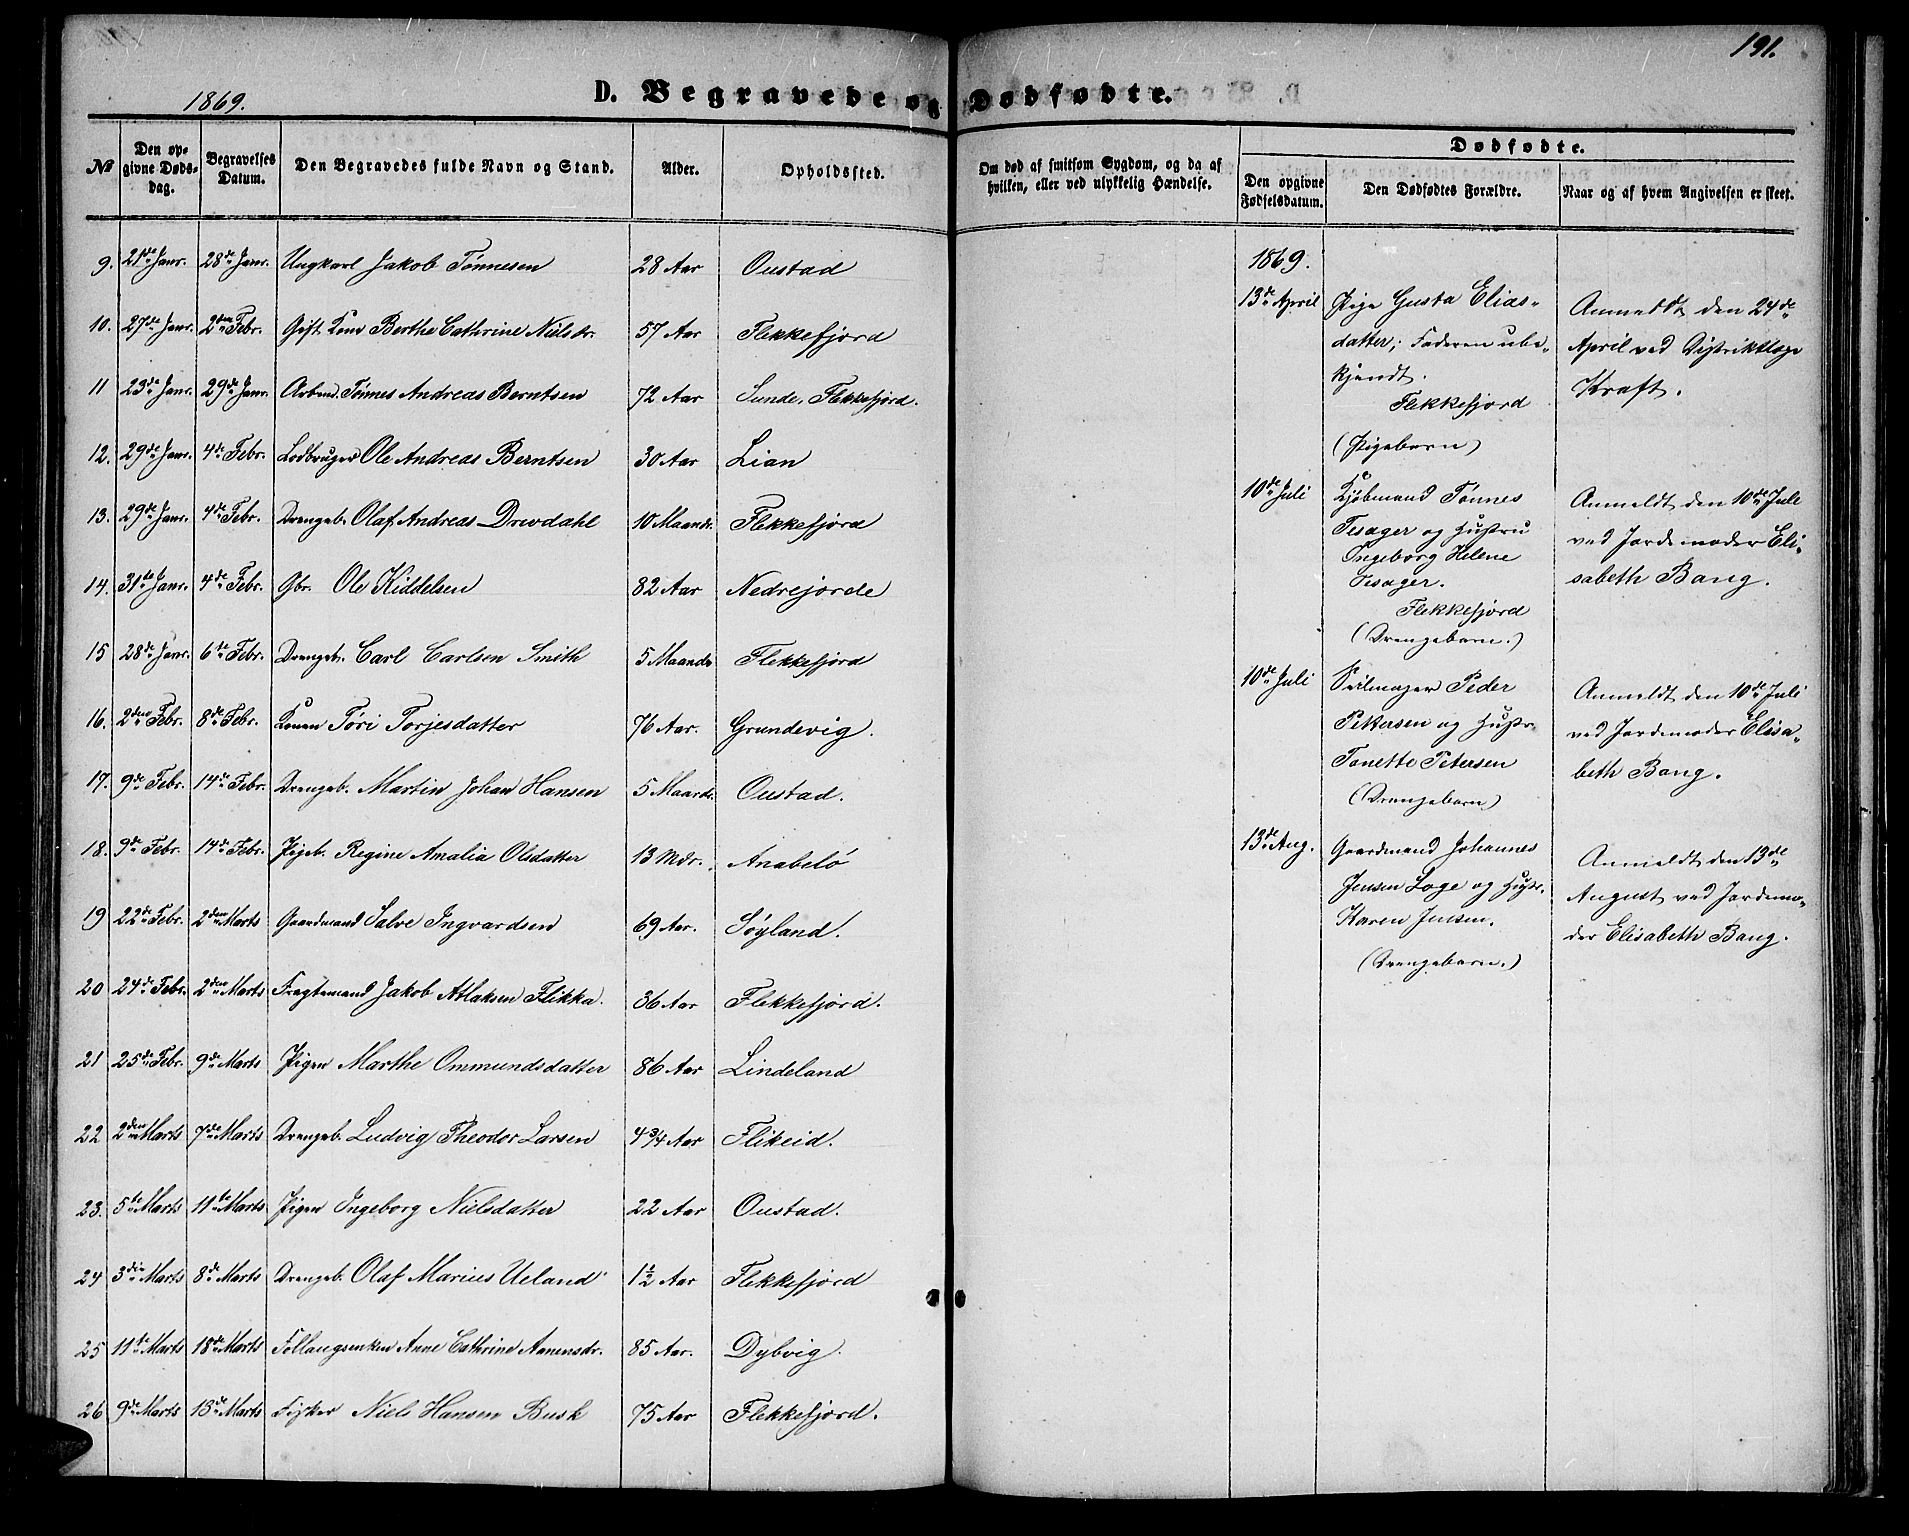 191.
1869.
D. Begravede og Dødfødte.
No
Den opgivne Dødsdag.
Begravelses Datum.
Den Begravedes fulde Navn og Stand.
Alder.
Opholdssted.
Om død af smitsom Sygdom, og da af hvilken, eller ved ulykkelig Hændelse.
Dødfødte.
Den opgivne Fødselsdatum.
Den Dødfødtes Forældre.
Naar og af hvem Angivelsen er skeet.
9. 21de Janr. 28de Janr. Ungkarl Jakob Tønnesen 28 Aar Oustad
10. 27de Janr. 2den Febr. Gift Kone Berthe Cathrine Nielsdr. 57 Aar Flekkefjord
11 23de Janr. 29de Janr. Arbmd. Tønnes Andreas Berntsen 72 Aar Sunde, Flekkefjord.
12. 29de Janr. 4de Febr. Lodbruger Ole Andreas Berntsen 30 Aar Lian
13. 29de Janr. 4de Febr. Drengeb. Olaf Andreas Drevdahl 10 Maand. Flekkefjord
14. 31te Janr. 4de Febr. Gbr. Ole Kiddelsen 82 Aar Nedrejorde
15 28de Janr. 6te Febr. Drengeb. Carl Carlsen Smith 5 Maand. Flekkefjord
16. 2den Febr. 8de Febr. Konen Tøri Torjesdatter 76 Aar. Grundevig.
17. 9de Febr. 14de Febr. Drengeb. Martin Johan Hansen 5 Maand. Oustad.
18. 9de Febr. 14de Febr. Pigeb. Regine Amalia Olsdatter 13 Mdr. Anabelø
19 22de Febr. 2den Marts Gaardmand Salve Ingvardsen 69 Aar. Søyland.
20 24de Febr. 2den Marts Fragtemand Jakob Atlaksen Flikka. 36 Aar Flekkefjord.
21 25de Febr. 9de Marts Pigen Marthe Ommundsdatter 86 Aar Lindeland
22 2den Marts 7de Marts Drengeb. Ludvig Theodor Larsen 4 3/4 Aar Flikeid.
23. 5te Marts 11te Marts Pigen Ingeborg Nielsdatter 22 Aar Oustad.
24 3die Marts 8de Marts Drengeb. Olaf Marius Ueland 1 1/2 Aar Flekkefjord
25 11te Marts 18de Marts Føllaugsenken Anne Cathrine Aanensdr. 85 Aar. Dybvig.
26 9de Marts 13de Marts Fisker Niels Hansen Busk 75 Aar Flekkefjord.
1869.
13de April Pige Gusta Elias-
datter; Faderen ube-
kjendt.
Flekkefjord
(Pigebarn)
Anmeldt den 24de
April ved Distriktlæge
Kraft.
10de Juli Kjøbmand Tønnes
Tesager og Hustru
Ingeborg Helene
Tesager.
Flekkefjord
(Drengebarn.)
Anmeldt den 10de Juli
ved Jordemoder Eli-
sabeth Bang.
10de Juli Seilmager Peder
Pettersen og Hustr.
Tonette Petersen
(Drengebarn)
Anmeldt den 10de Juli
ved Jordemoder Elisa-
beth Bang.
13de Aug. Gaardmand Johannes
Jensen Loge og Hustr.
Karen Jensen.
(Drengebarn.)
Anmeldt den 13de
August ved Jordemo-
der Elisabeth Bang.